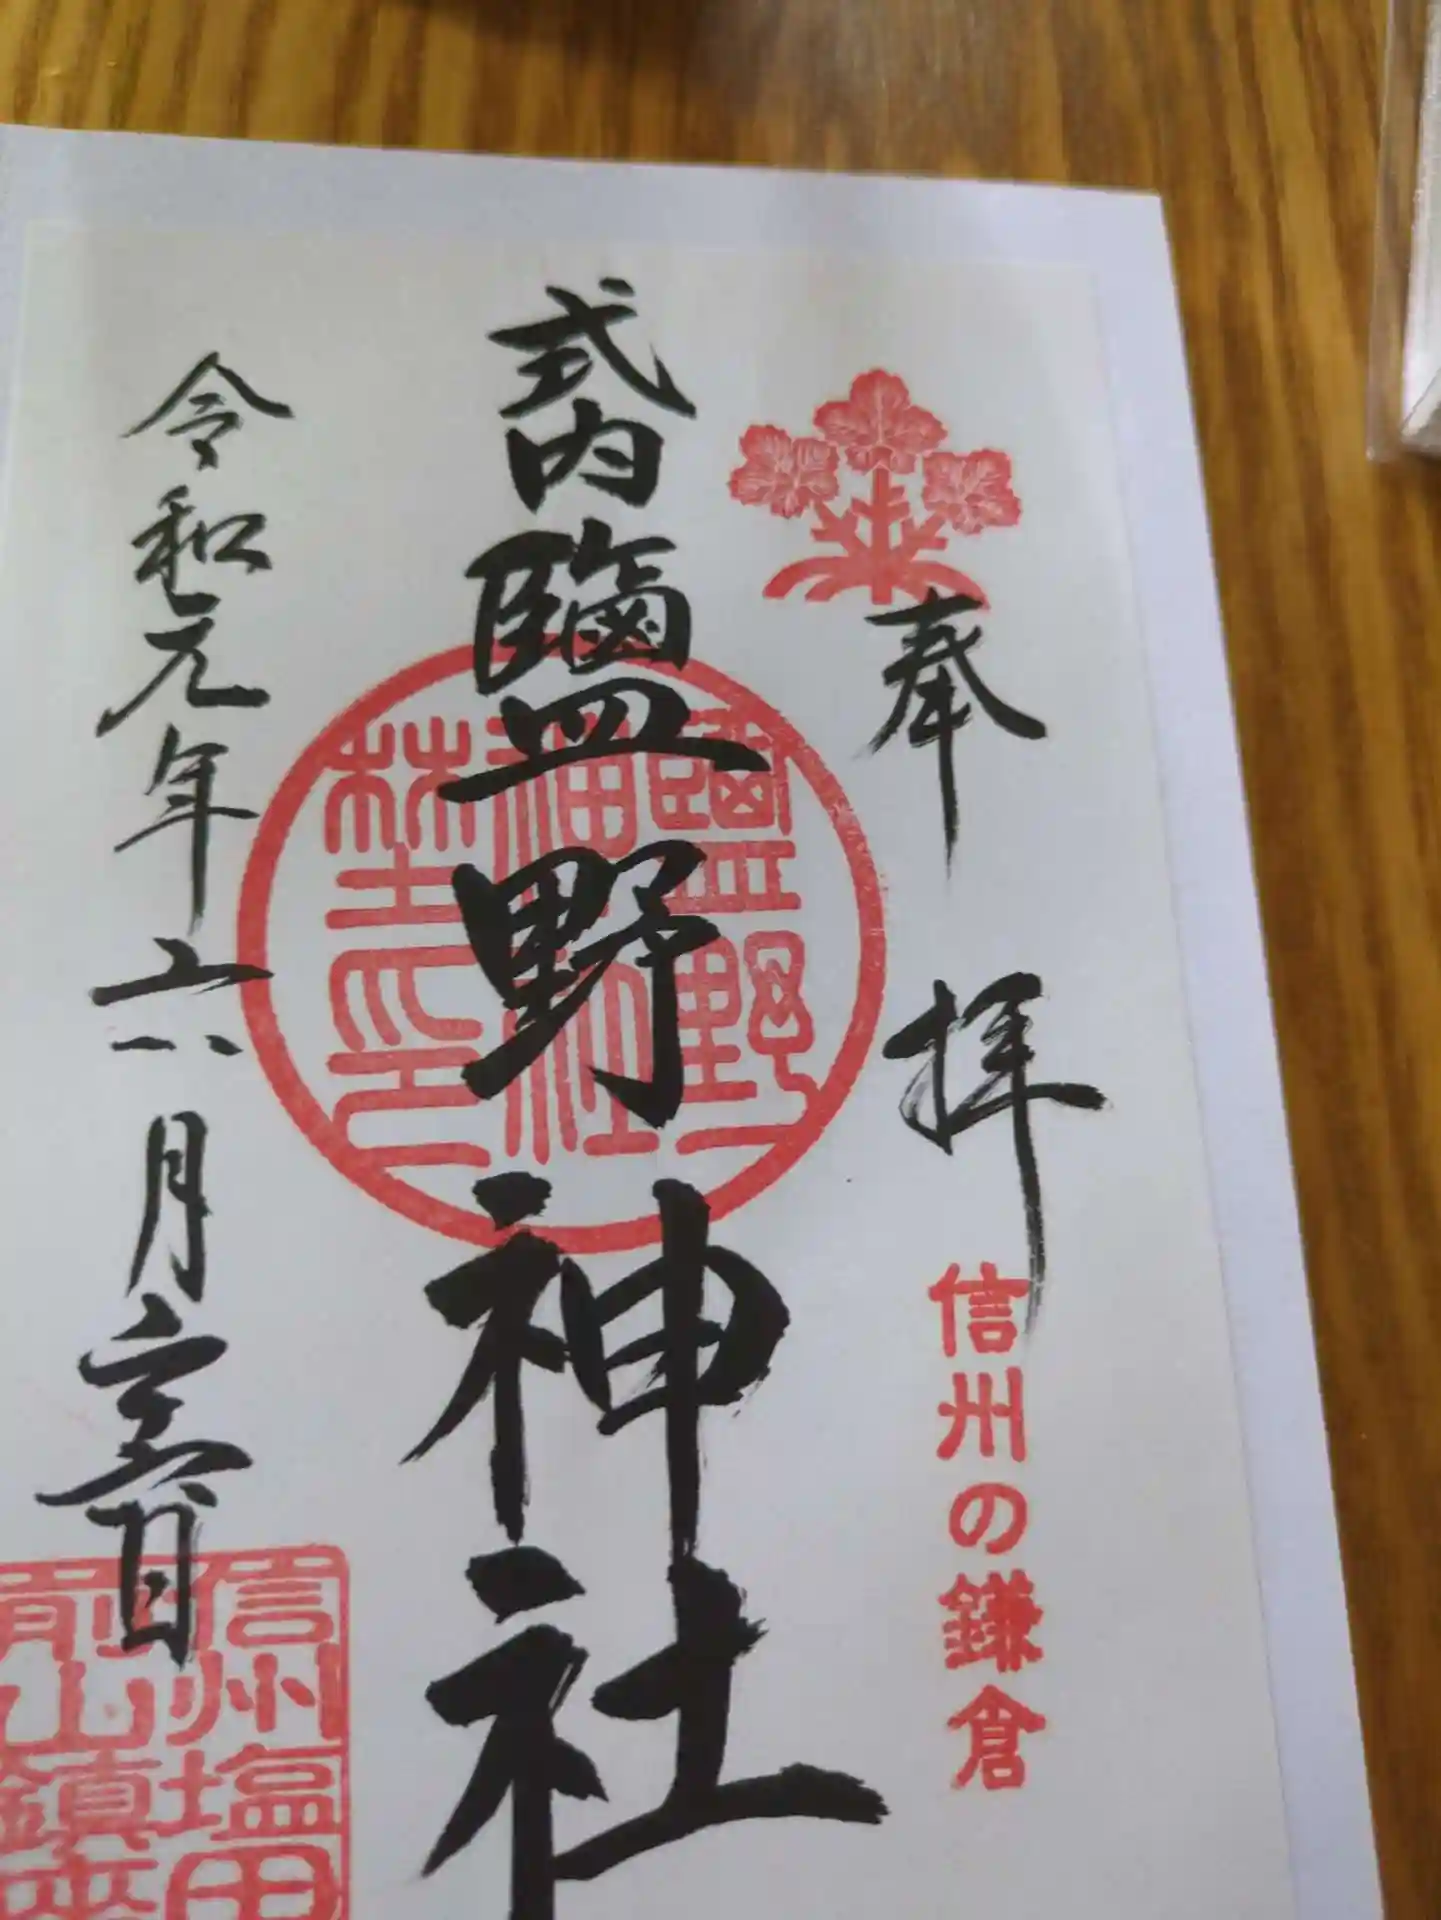 奉拝
信州の鎌倉
式内鹽野神社
鹽野
神社
令和元年六月
信州塩田
前山鎮座